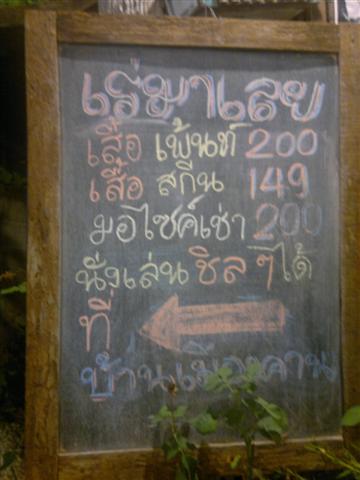 เร่มาเลย
เสื้อ เพ้นท์ 200
เสื้อ สกีน 149
มอไซค์เช่า 200
นั่งเล่น ชิล ๆ ได้
ที่
บ้านเมืองคาน